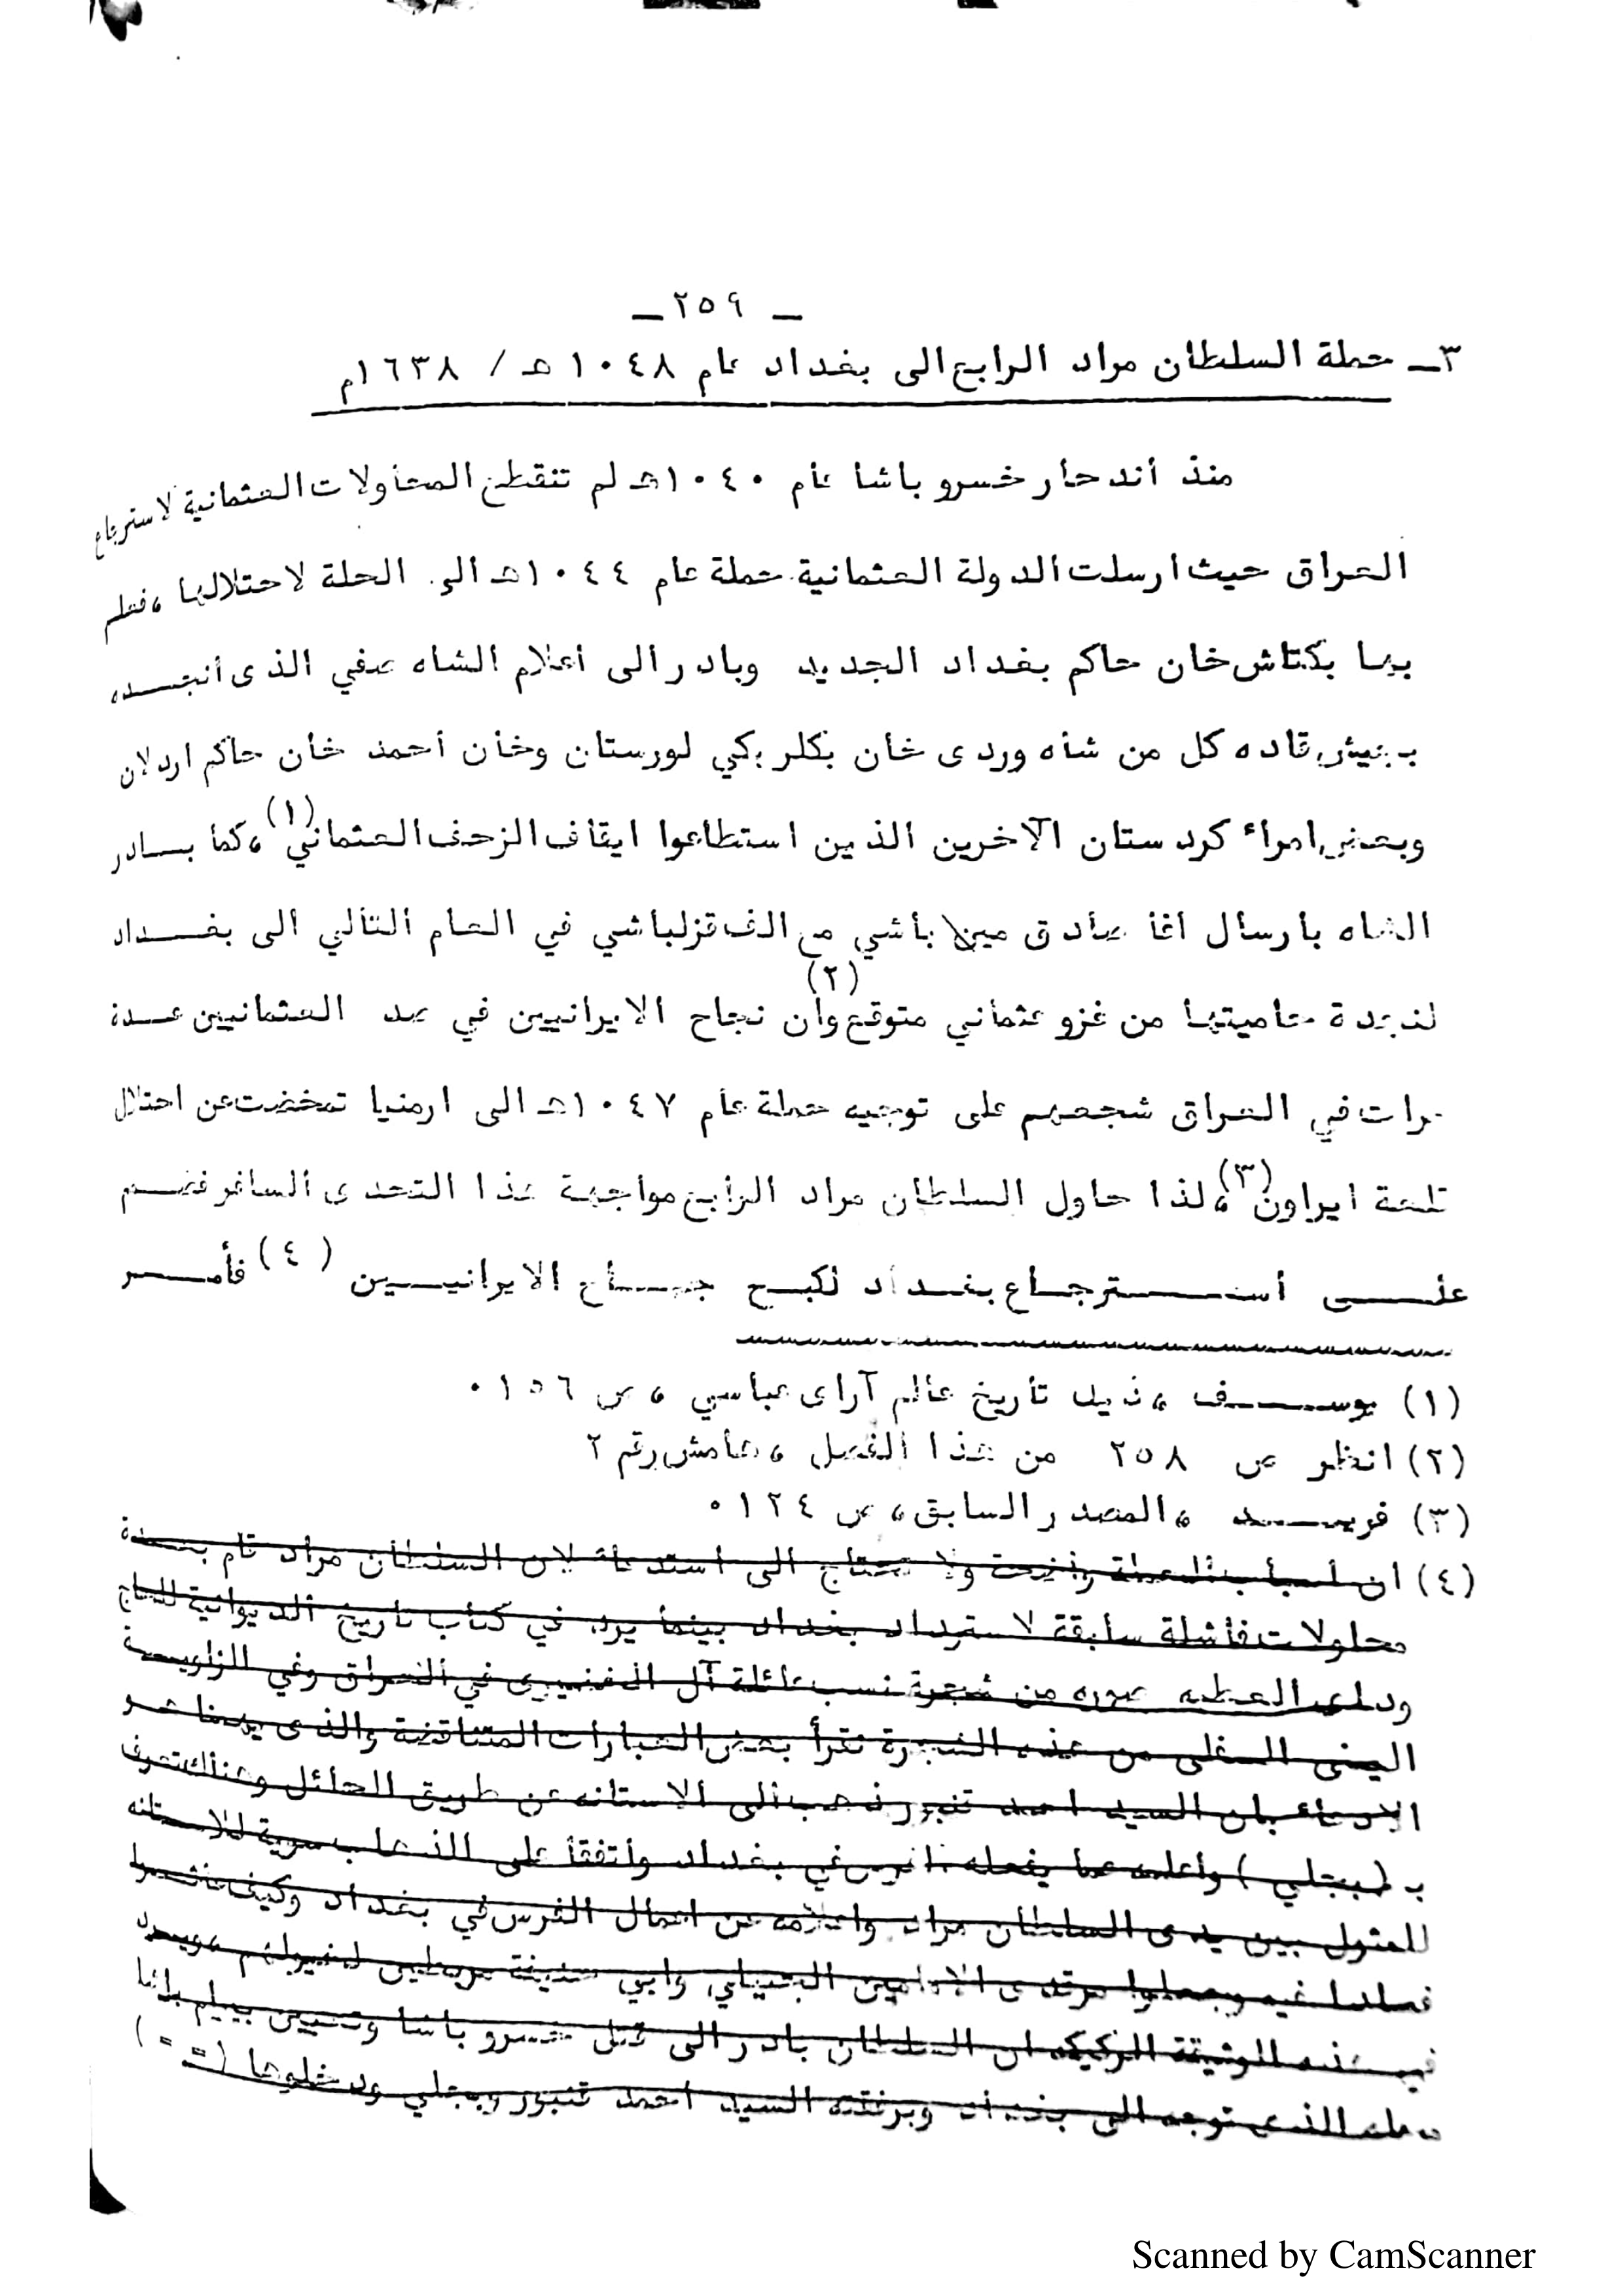 ـ ٢٥٩ ـ
٣ـ حملة السلطان مراد الرابع الى بغداد عام ١٠٤٨هـ / ١٦٣٨م
منذ أندحار خسرو باشا عام ١٠٤٠هـ لم تنقطع المحاولات العثمانية لاسترجاع
العراق حيث ارسلت الدولة العثمانية حملة عام ١٠٤٤هـ الى الحلة لاحتلالها ، فعلم
بها بكتاش خان حاكم بغداد الجديد وبادر الى اعلام الشاه صفي الذى أنجـــده
بجيش قاده كل من شاه وردى خان بكلربكي لورستان وخان أحمد خان حاكم اردلان
وبعض امراء كردستان الآخرين الذين استطاعوا ايقاف الزحف العثماني(١) ، كما بـــادر
الشاه بارسال اغا صادق مين باشي مع الف قزلباشي في العام التالي الى بغـــداد
لنجدة حاميتها من غزو عثماني متوقع(٢) وان نجاح الايرانيين في صد العثمانيين عـــدة
مرات في العراق شجعهم على توجيه حملة عام ١٠٤٧هـ الى ارمنيا تمخضت عن احتلال
قلعة ايراون(٣) ، لذا حاول السلطان مراد الرابع مواجهة هذا التحدى السافر فصـــم
علـــى أســـترجـاع بغـداد لكبـح جمـــاح الايرانيـــين (٤) فأمـــر
(١) يوســـف ، ذيل تأريخ عالم آراى عباسي ، ص ١٥٦ ٠
(٢) انظر ص ٢٥٨ من هذا الفصل ، هامش رقم ٢
(٣) فريـــد ، المصدر السابق ، ص ١٢٤ ٠
(٤) ان أسباب الحملة واضحة ولا تحتاج الى استدعاء لان السلطان مراد قام بعـــدة
محاولات فاشلة سابقة لاسترداد بغداد بينما يرد في كتاب تاريخ الديوانية للحاج
ودا العطيه صوره من شجرة نسب عائلة آل في العراق وفي الزاويـــة
اليمنى السفلى من هذه الشجرة نقرأ بعض العبارات المتناقضة والذى
الادعاء بان السيد احمد قنبور ذهب الى الاستانه عن طريق الحائل وهناك تعرف
بـ ( بيجلي ) واعلمه عما يفعله الفرس في بغداد واتفقا على الذهاب سوية للاستانه
للمثول بين يدى السلطان مراد واعلامه عن اعمال الفرس في بغداد وكيف
فسادا فيه وجعلوا مرقدى الامامين وابي حنيفة لخيولهم
هذه الوثيقة الركيكه ان السلطان بادر الى قتل خسرو باشا وتعيين بيرام باشا
الذى توجه الى بغداد وبرفقته السيد أحمد قنبور وبيجلي ودخلوها ( = = )
Scanned by CamScanner